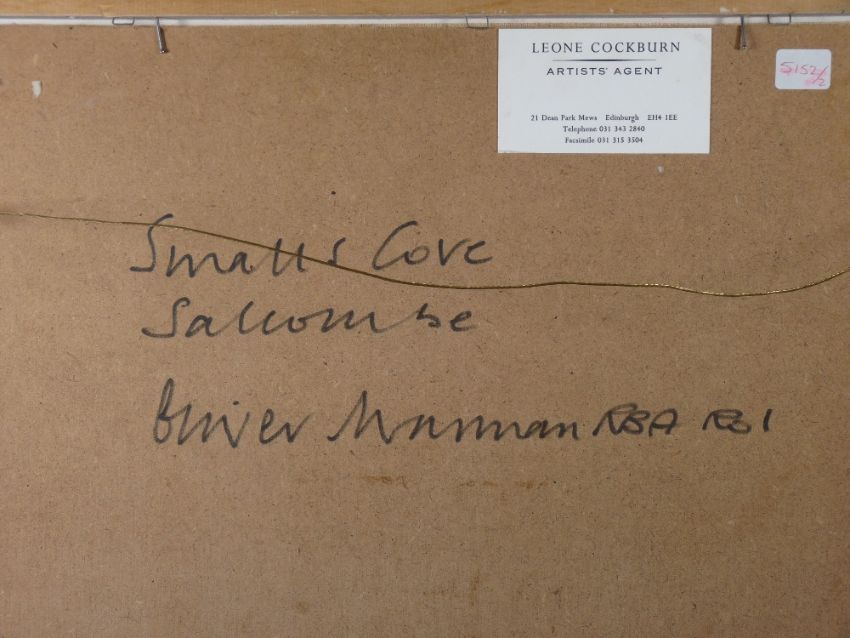 LEONE COCKBURN
ARTISTS' AGENT
21 Dean Park Mews Edinburgh EH4 1EE
Telephone 031 343 2840
Facsimile 031 315 3504
5152/2
Smalls Cove
Salcombe
Oliver Warman RBA ROI